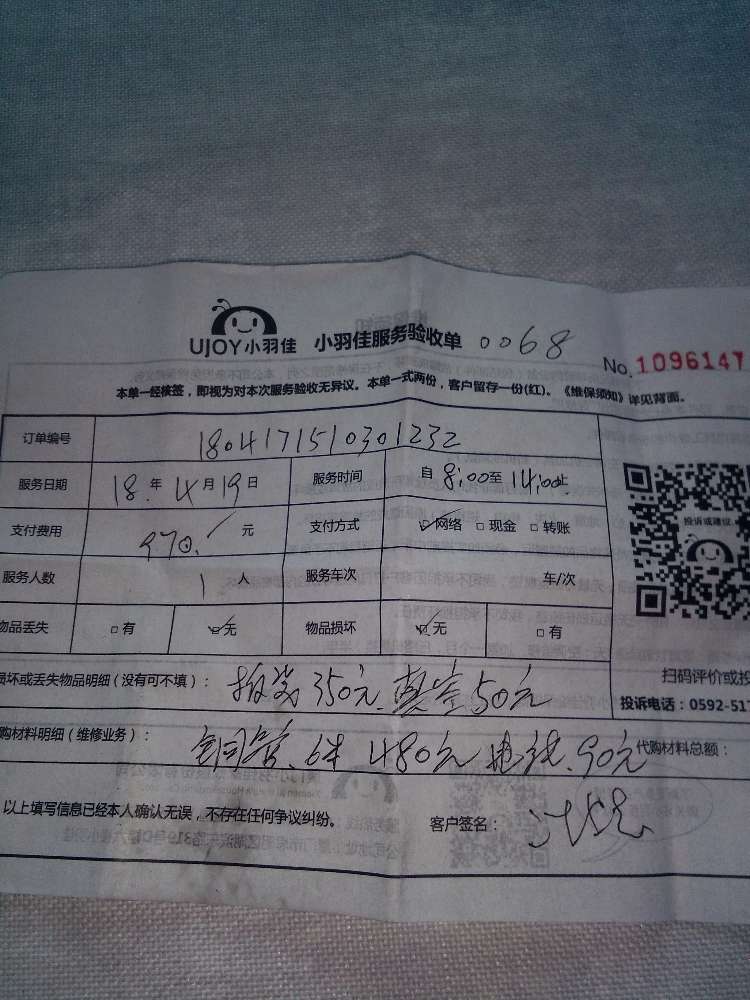 UJOY小羽佳 小羽佳服务验收单 0068
No. 1096147
本单一经核签，即视为对本次服务验收无异议。本单一式两份，客户留存一份(红)。《维保须知》详见背面。
订单编号 1804171510301232
服务日期 18 年 4 月 19 日 服务时间 自 8:00 至 14:00 止
支付费用 970. 元 支付方式 ☑网络 □现金 □转账
服务人数 1 人 服务车次 车/次
物品丢失 □有 ☑无 物品损坏 ☑无 □有
投诉或建议
扫码评价或投
损坏或丢失物品明细（没有可不填）： 350元、真空50元
投诉电话：0592-517
购材料明细（维修业务）： 铜管、6米 480元 电线、90元 代购材料总额：
以上填写信息已经本人确认无误，不存在任何争议纠纷。 客户签名：